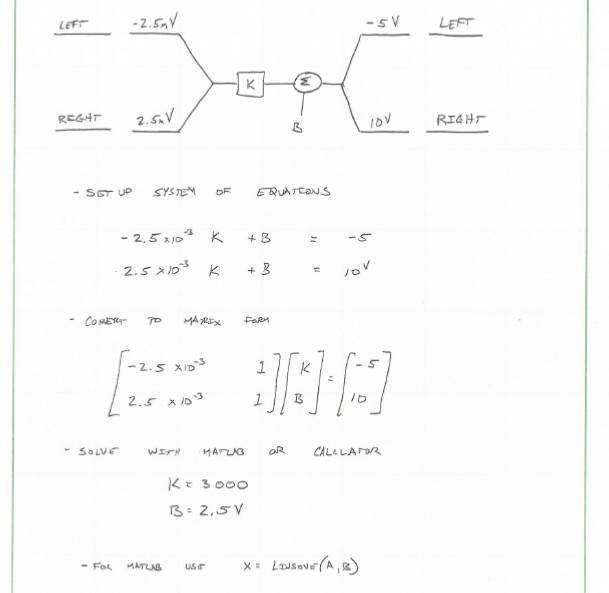 LEFT -2.5mV -5V LEFT
K Σ
RIGHT 2.5mV B 10V RIGHT
- SET UP SYSTEM OF EQUATIONS
-2.5 x10⁻³ K + B = -5
2.5 x10⁻³ K + B = 10V
- COVERT TO MATRIX FORM
[-2.5 x10⁻³ 1] [K] = [-5]
[2.5 x10⁻³ 1] [B] [10]
- SOLVE WITH MATLAB OR CALLLATOR
K = 3000
B = 2.5V
- FOR MATLAB USE X = LINSOVE(A,B)